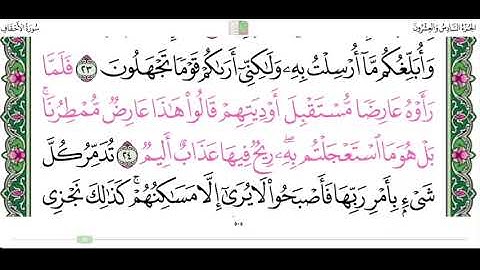 سُورَةُ الأَحْقَافِ الجُزْءُ السَّادِسُ وَالعِشْرُونَ
وَأُبَلِّغُكُم مَّآ أُرْسِلْتُ بِهِۦ وَلَٰكِنِّىٓ أَرَىٰكُمْ قَوْمًا تَجْهَلُونَ ٢٣ فَلَمَّا
رَأَوْهُ عَارِضًا مُّسْتَقْبِلَ أَوْدِيَتِهِمْ قَالُوا۟ هَٰذَا عَارِضٌ مُّمْطِرُنَا ۚ
بَلْ هُوَ مَا ٱسْتَعْجَلْتُم بِهِۦ ۖ رِيحٌ فِيهَا عَذَابٌ أَلِيمٌ ٢٤ تُدَمِّرُ كُلَّ
شَىْءٍۭ بِأَمْرِ رَبِّهَا فَأَصْبَحُوا۟ لَا يُرَىٰٓ إِلَّا مَسَٰكِنُهُمْ ۚ كَذَٰلِكَ نَجْزِى
٥٠٥